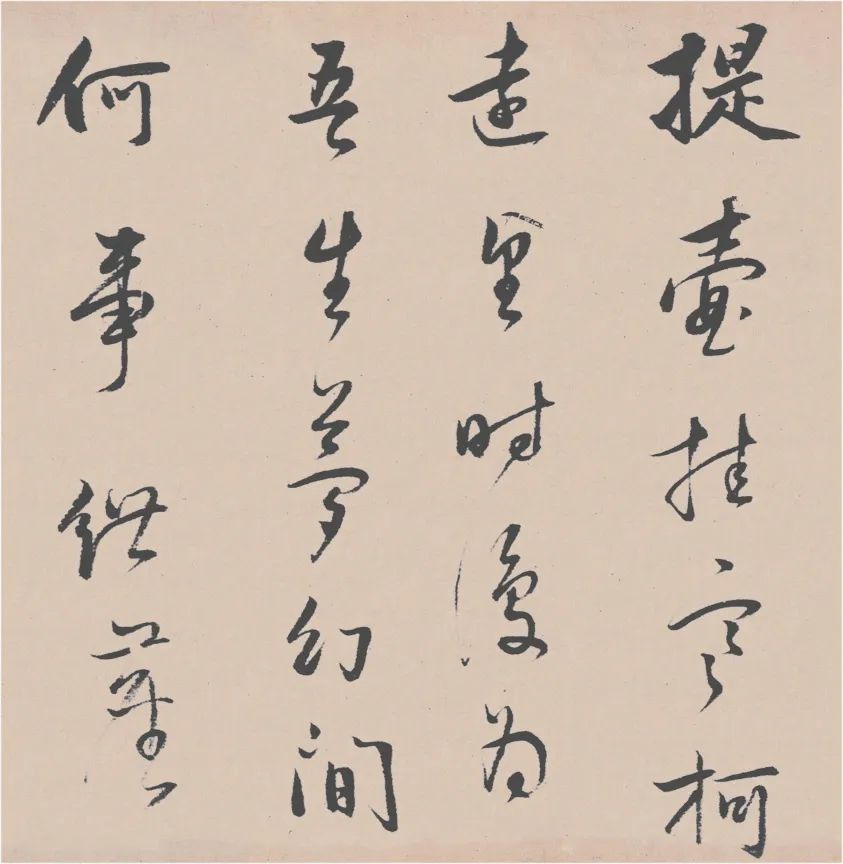 提壺挂寒柯
遠望时復为
吾生夢幻間
何事紲塵